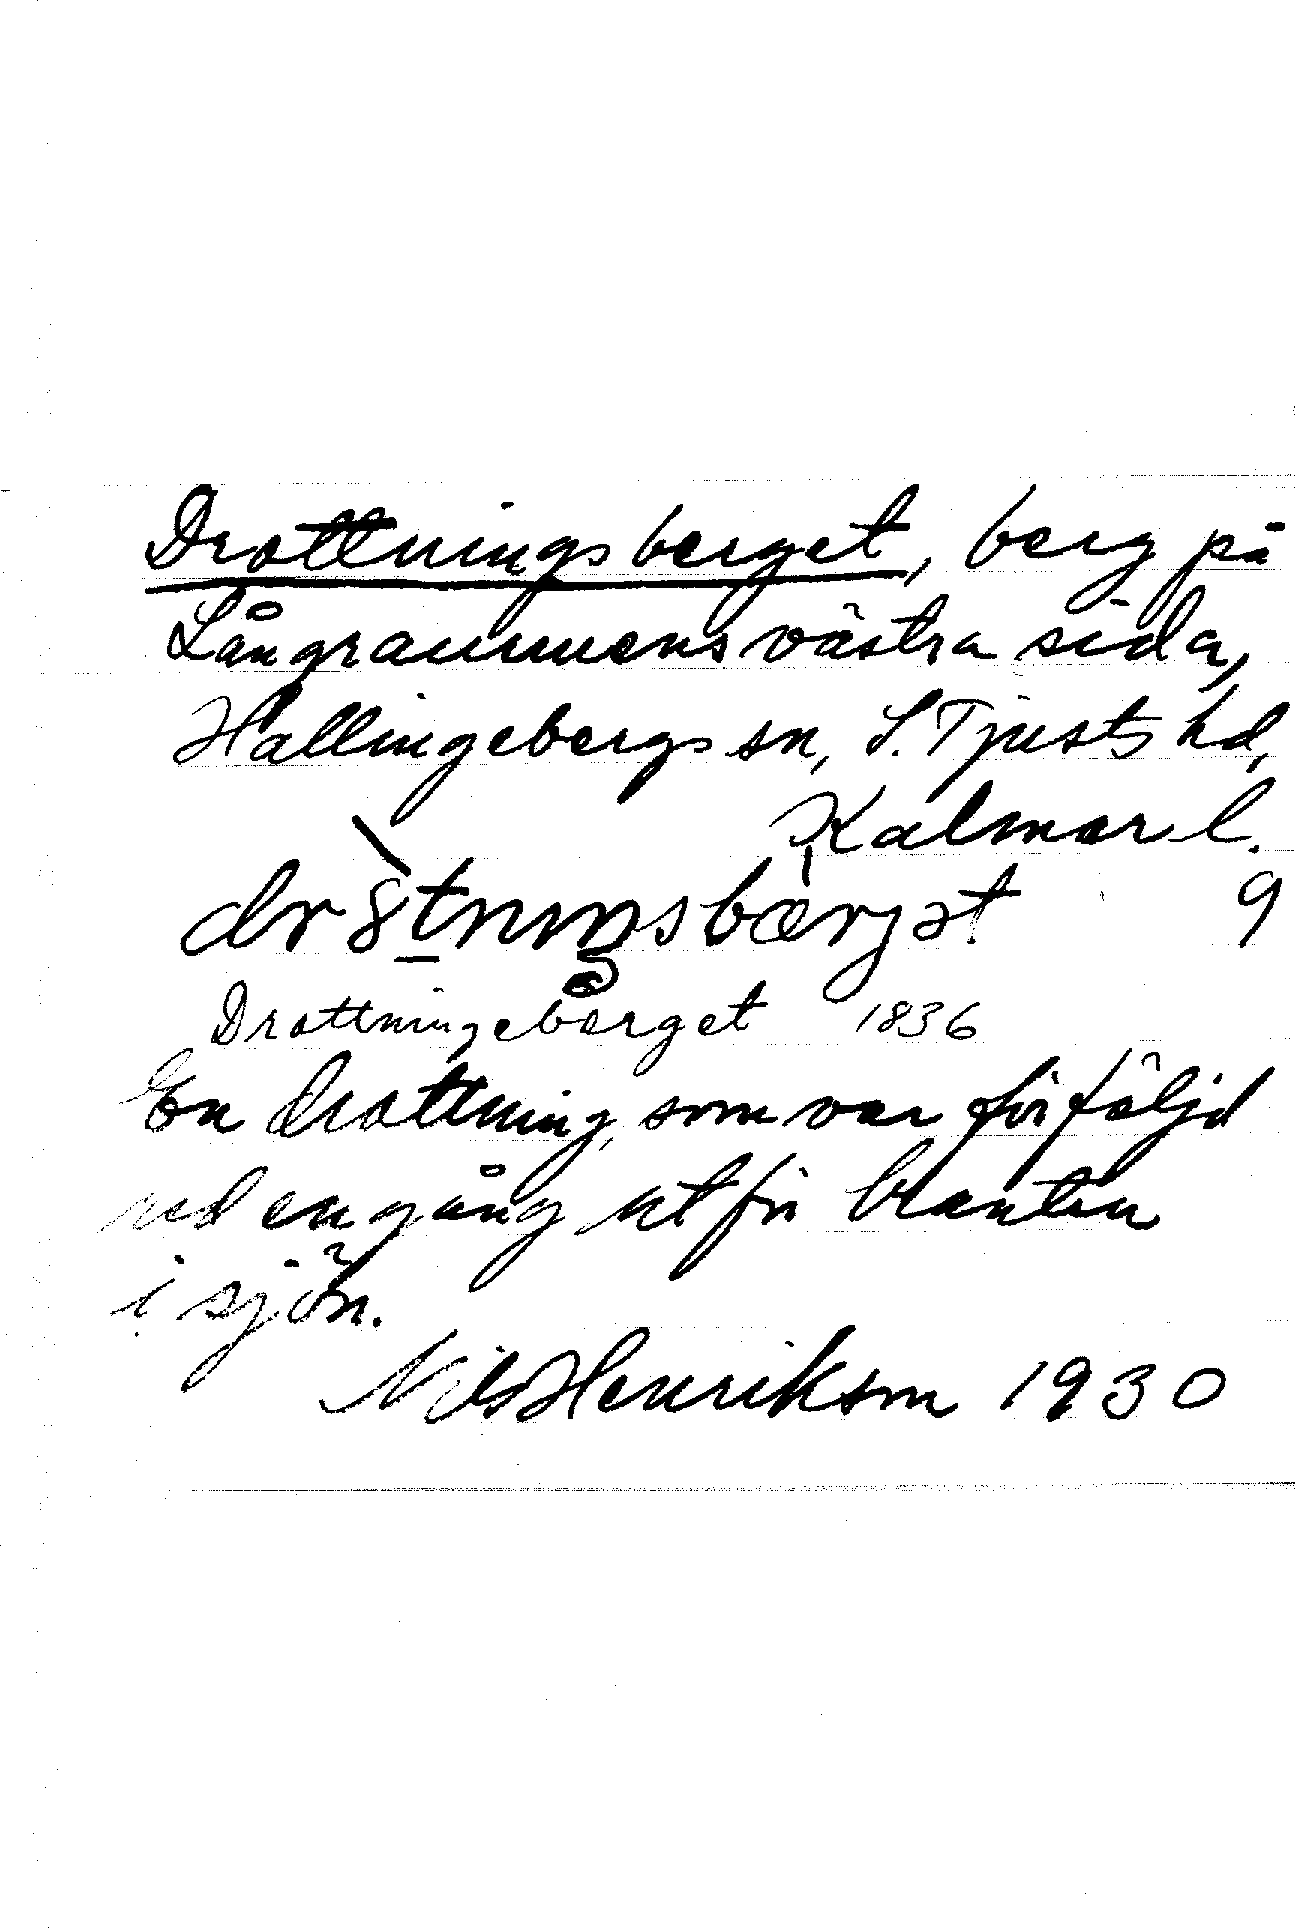 Drottningsberget, berg på
Långrammens västra sida,
Hallingebergs sn, S. Tjusts hd,
Kalmar l.
9
Drottningeberget 1836
En drottning, som var förföljd
red en gång utför branten
i sjön.
Nils Henrikson 1930